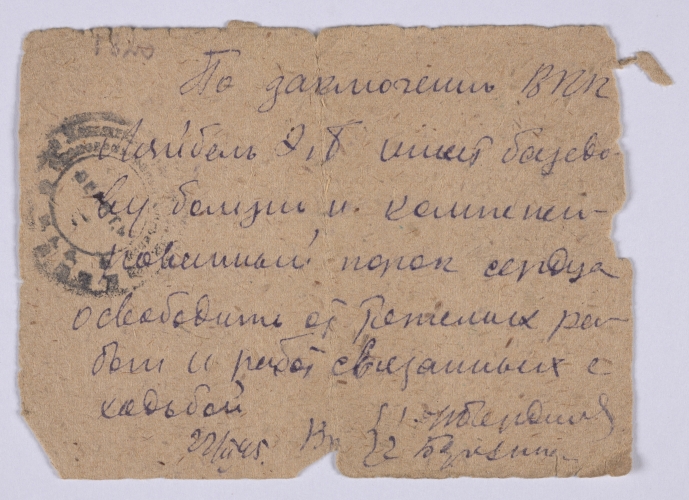 По заключению ВКК
имеет базедо-
ву болезнь и компенси-
рованный порок сердца
освободить от тяжелых ра-
бот и работ связанных с
ходьбой